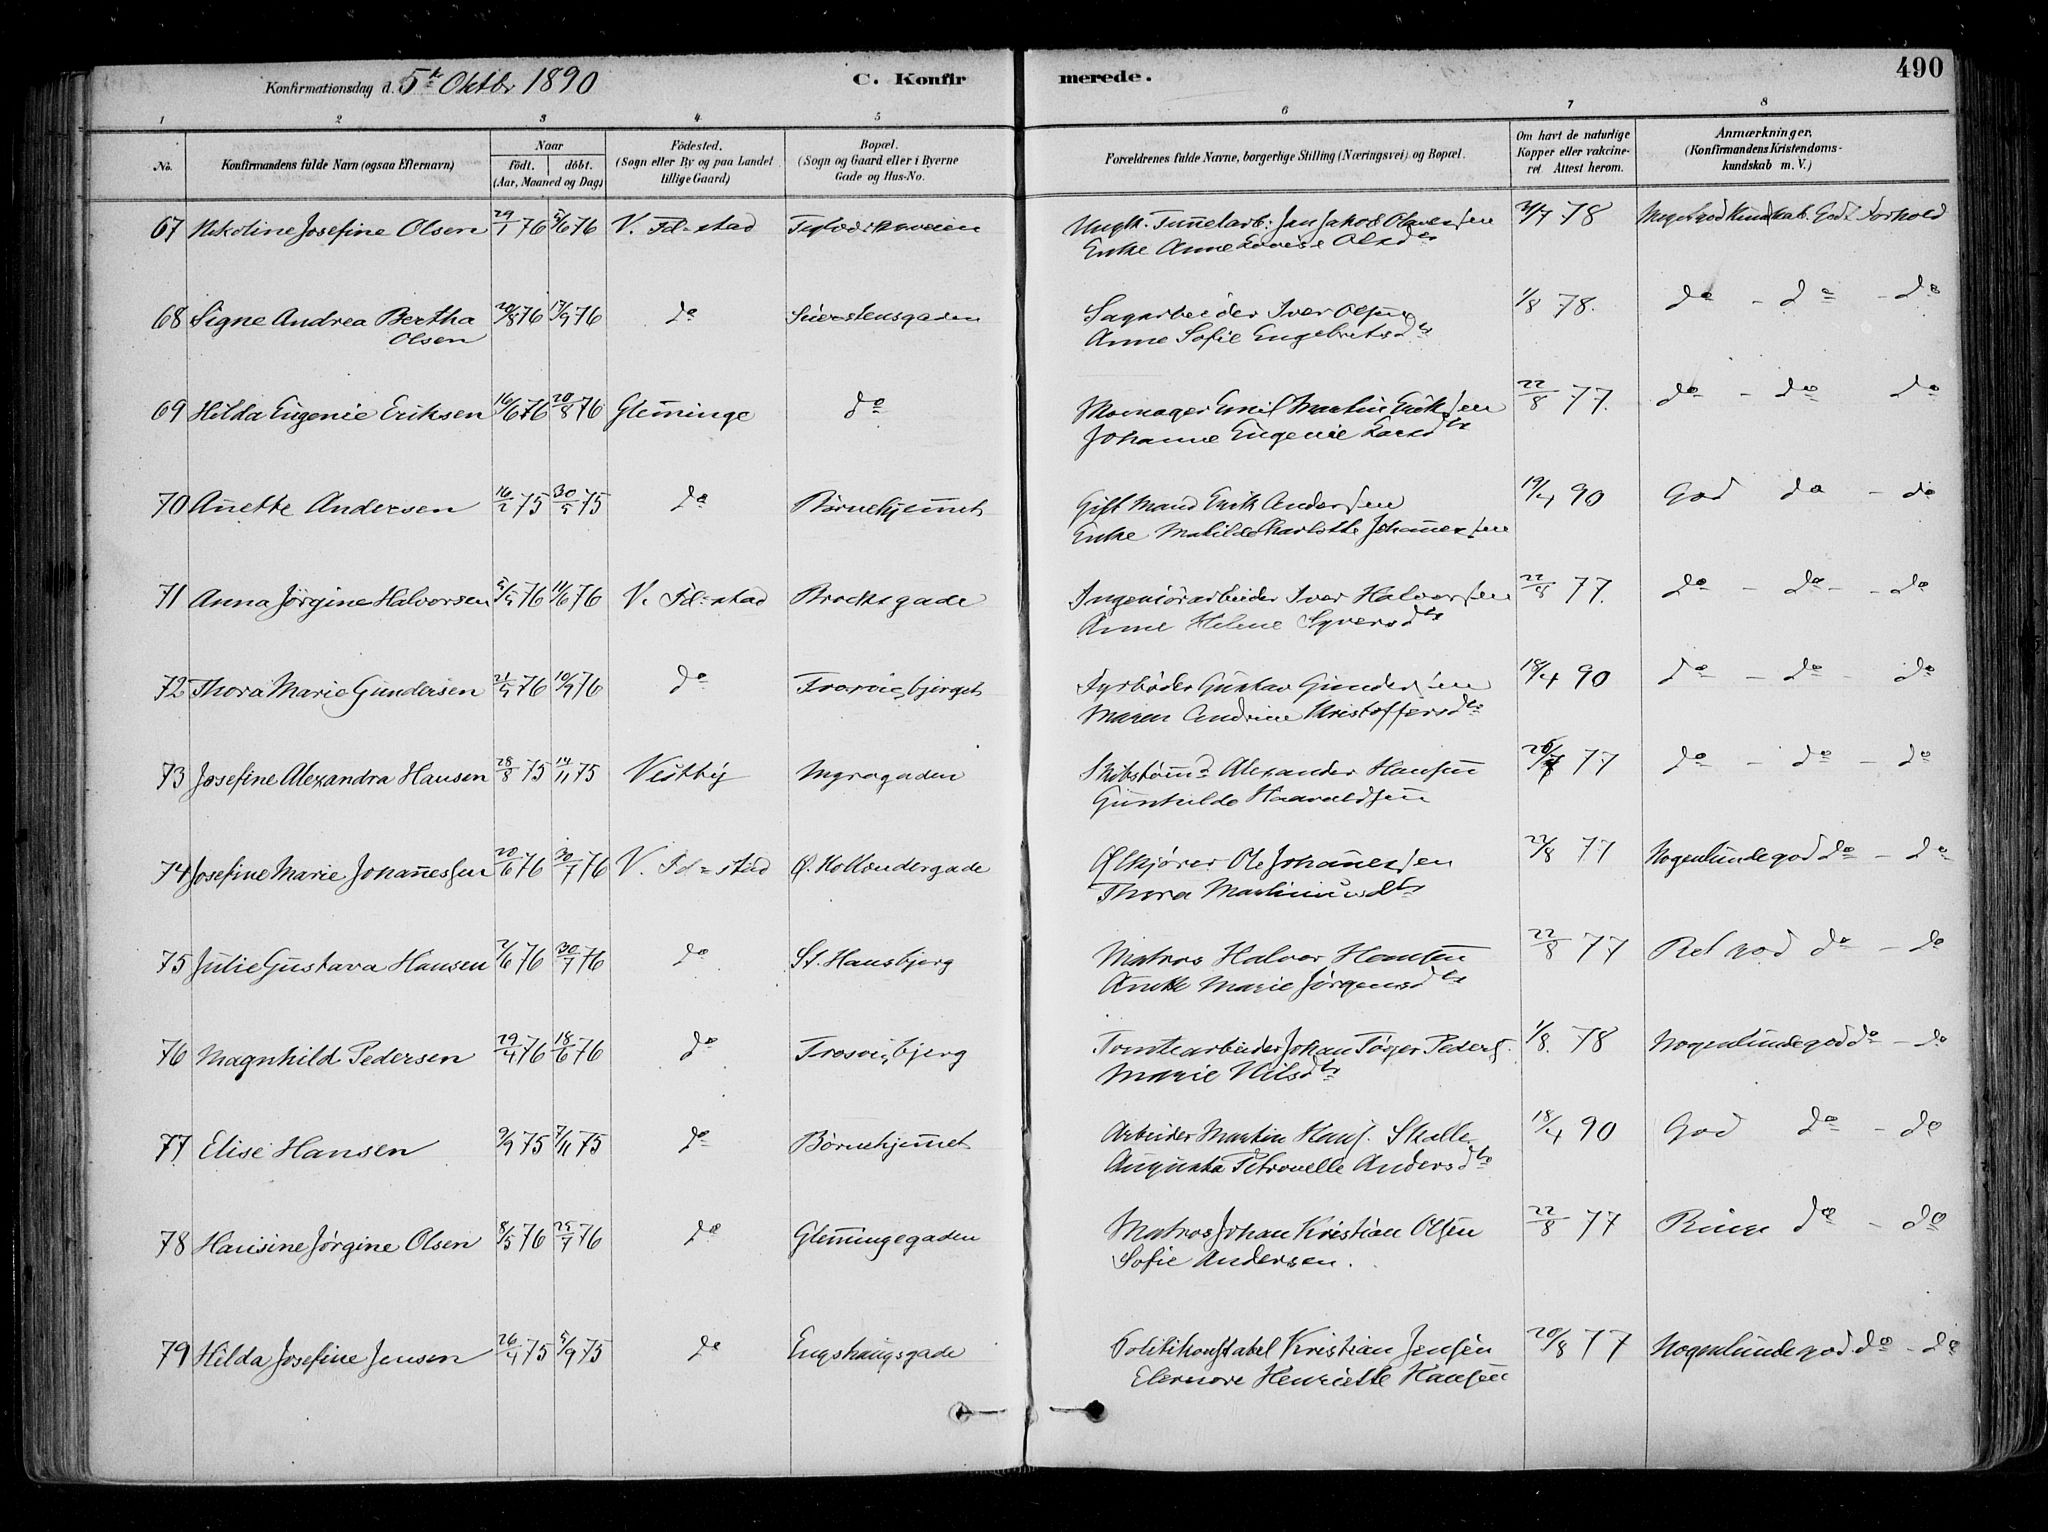 Konfirmationsdag d. 5te Oktbr 1890
C. Konfirmerede.
490
1 2 3 4 5 6 7 8
No.
Konfirmandens fulde Navn (ogsaa Efternavn)
Naar
födt. döbt.
(Aar, Maaned og Dag)
Födested.
(Sogn eller By og paa Landet
tillige Gaard)
Bopæl.
(Sogn og Gaard eller i Byerne
Gade og Hus-No.
Forældrenes fulde Navne, borgerlige Stilling (Næringsvei) og Bopæl.
Om havt de naturlige
Kopper eller vakcine-
ret Attest herom.
Anmærkninger,
(Konfirmandens Kristendoms-
kundskab m. V.)
67 Nikoline Josefine Olsen 29/1 76 5/6 76 V. Fd=stad Ungk. Tunnelarb: Jan Jakob Olavessen 21/7 78 Meget god Kundskab. Godt Forhold
Enke Anne Lovise Olsdtr
68 Signe Andrea Bertha 20/8 76 17/9 76 do Sagarbeider Iver Olsen 1/8 78. do - do - do
Olsen Anne Sofie Engebretsdtr
69 Hilda Eugenie Eriksen 16/6 76 20/8 76 Glemminge do Emil Martin Eriksen 22/8 77. do - do do
Johanne Eugenie Larsdtr
70 Anette Andersen 16/2 75 30/5 75 do Børnehjemmet Gift Mand Erik Andersen 19/4 90 God do - do
Enke Matilde Charlotte Johannessen
71 Anna Jørgine Halvorsen 5/4 76 11/6 76 V. Fd=stad Brochsgade Ingeniörarbeider Iver Halvorsen 22/8 77. do - do - do
Anne Helene Syversdtr
72 Thora Marie Gundersen 21/4 76 10/9 76 do Trosviksbjerget Fyrbøder Gustav Gundersen 18/4 90 do - do - do
Maren Andrine Kristoffersdtr
73 Josefine Alexandra Hansen 28/8 75 14/11 75 Vestby Nygragaden Skibstømmd Alexander Hansen 26/7 77 do - do - do
Gunhilde Haavaldsen
74 Josefine Marie Johannessen 20/6 76 30/7 76 V. Fd=stad Ø. Hollændergade Ølkjører Ole Johannessen 22/8 77 Nogenlunde god do - do
Thora Martinusdtr
75 Julie Gustava Hansen 2/6 76 30/7 76 do St. Hansbjerg Matros Halvor Hansen 22/8 77 Ret god do - do
Anette Marie Jørgensdtr
76 Magnhild Pedersen 29/4 76 18/6 76 do Trosviksbjerg Tomtearbeider Johan Töger Peders. 1/8. 78 Nogenlunde god do - do
Marie Nilsdtr
77 Elise Hansen 9/9 75 7/11 75 do Børnehjemmet Arbeider Martin Hans. Skalle 18/4 90 God do - do
Augusta Petronelle Andersdtr
78 Hansine Jørgine Olsen 8/5 76 25/7 76 do Glemmingegaden Matros Johan Kristian Olsen 22/8 77 Ringe do - do
Sofie Andersen.
79 Hilda Josefine Jensen 26/4 75 5/9 75 do Engshaugsgade Politikonstabel Kristian Jensen 20/8 77 Nogenlunde god. do - do
Elenore Henriette Hansen